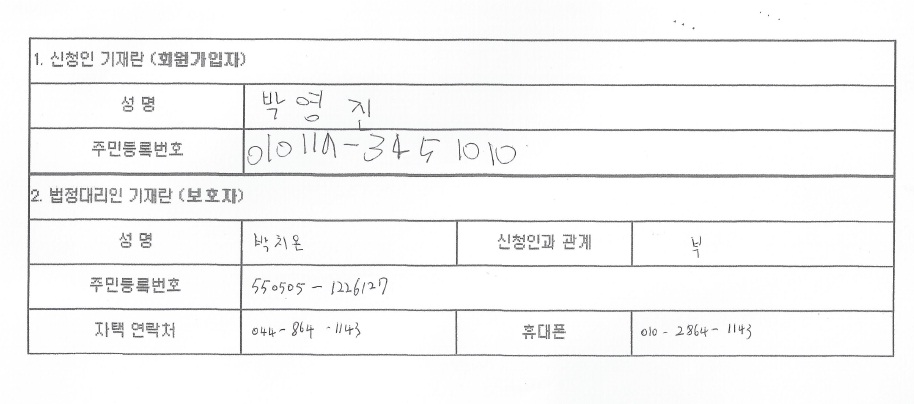 1. 신청인 기재란 (회원가입자)
성 명 박영진
주민등록번호 010119-3451010
2. 법정대리인 기재란 (보호자)
성 명 박지온 신청인과 관계 부
주민등록번호 550505-1226127
자택 연락처 044-864-1143 휴대폰 010-2864-1143